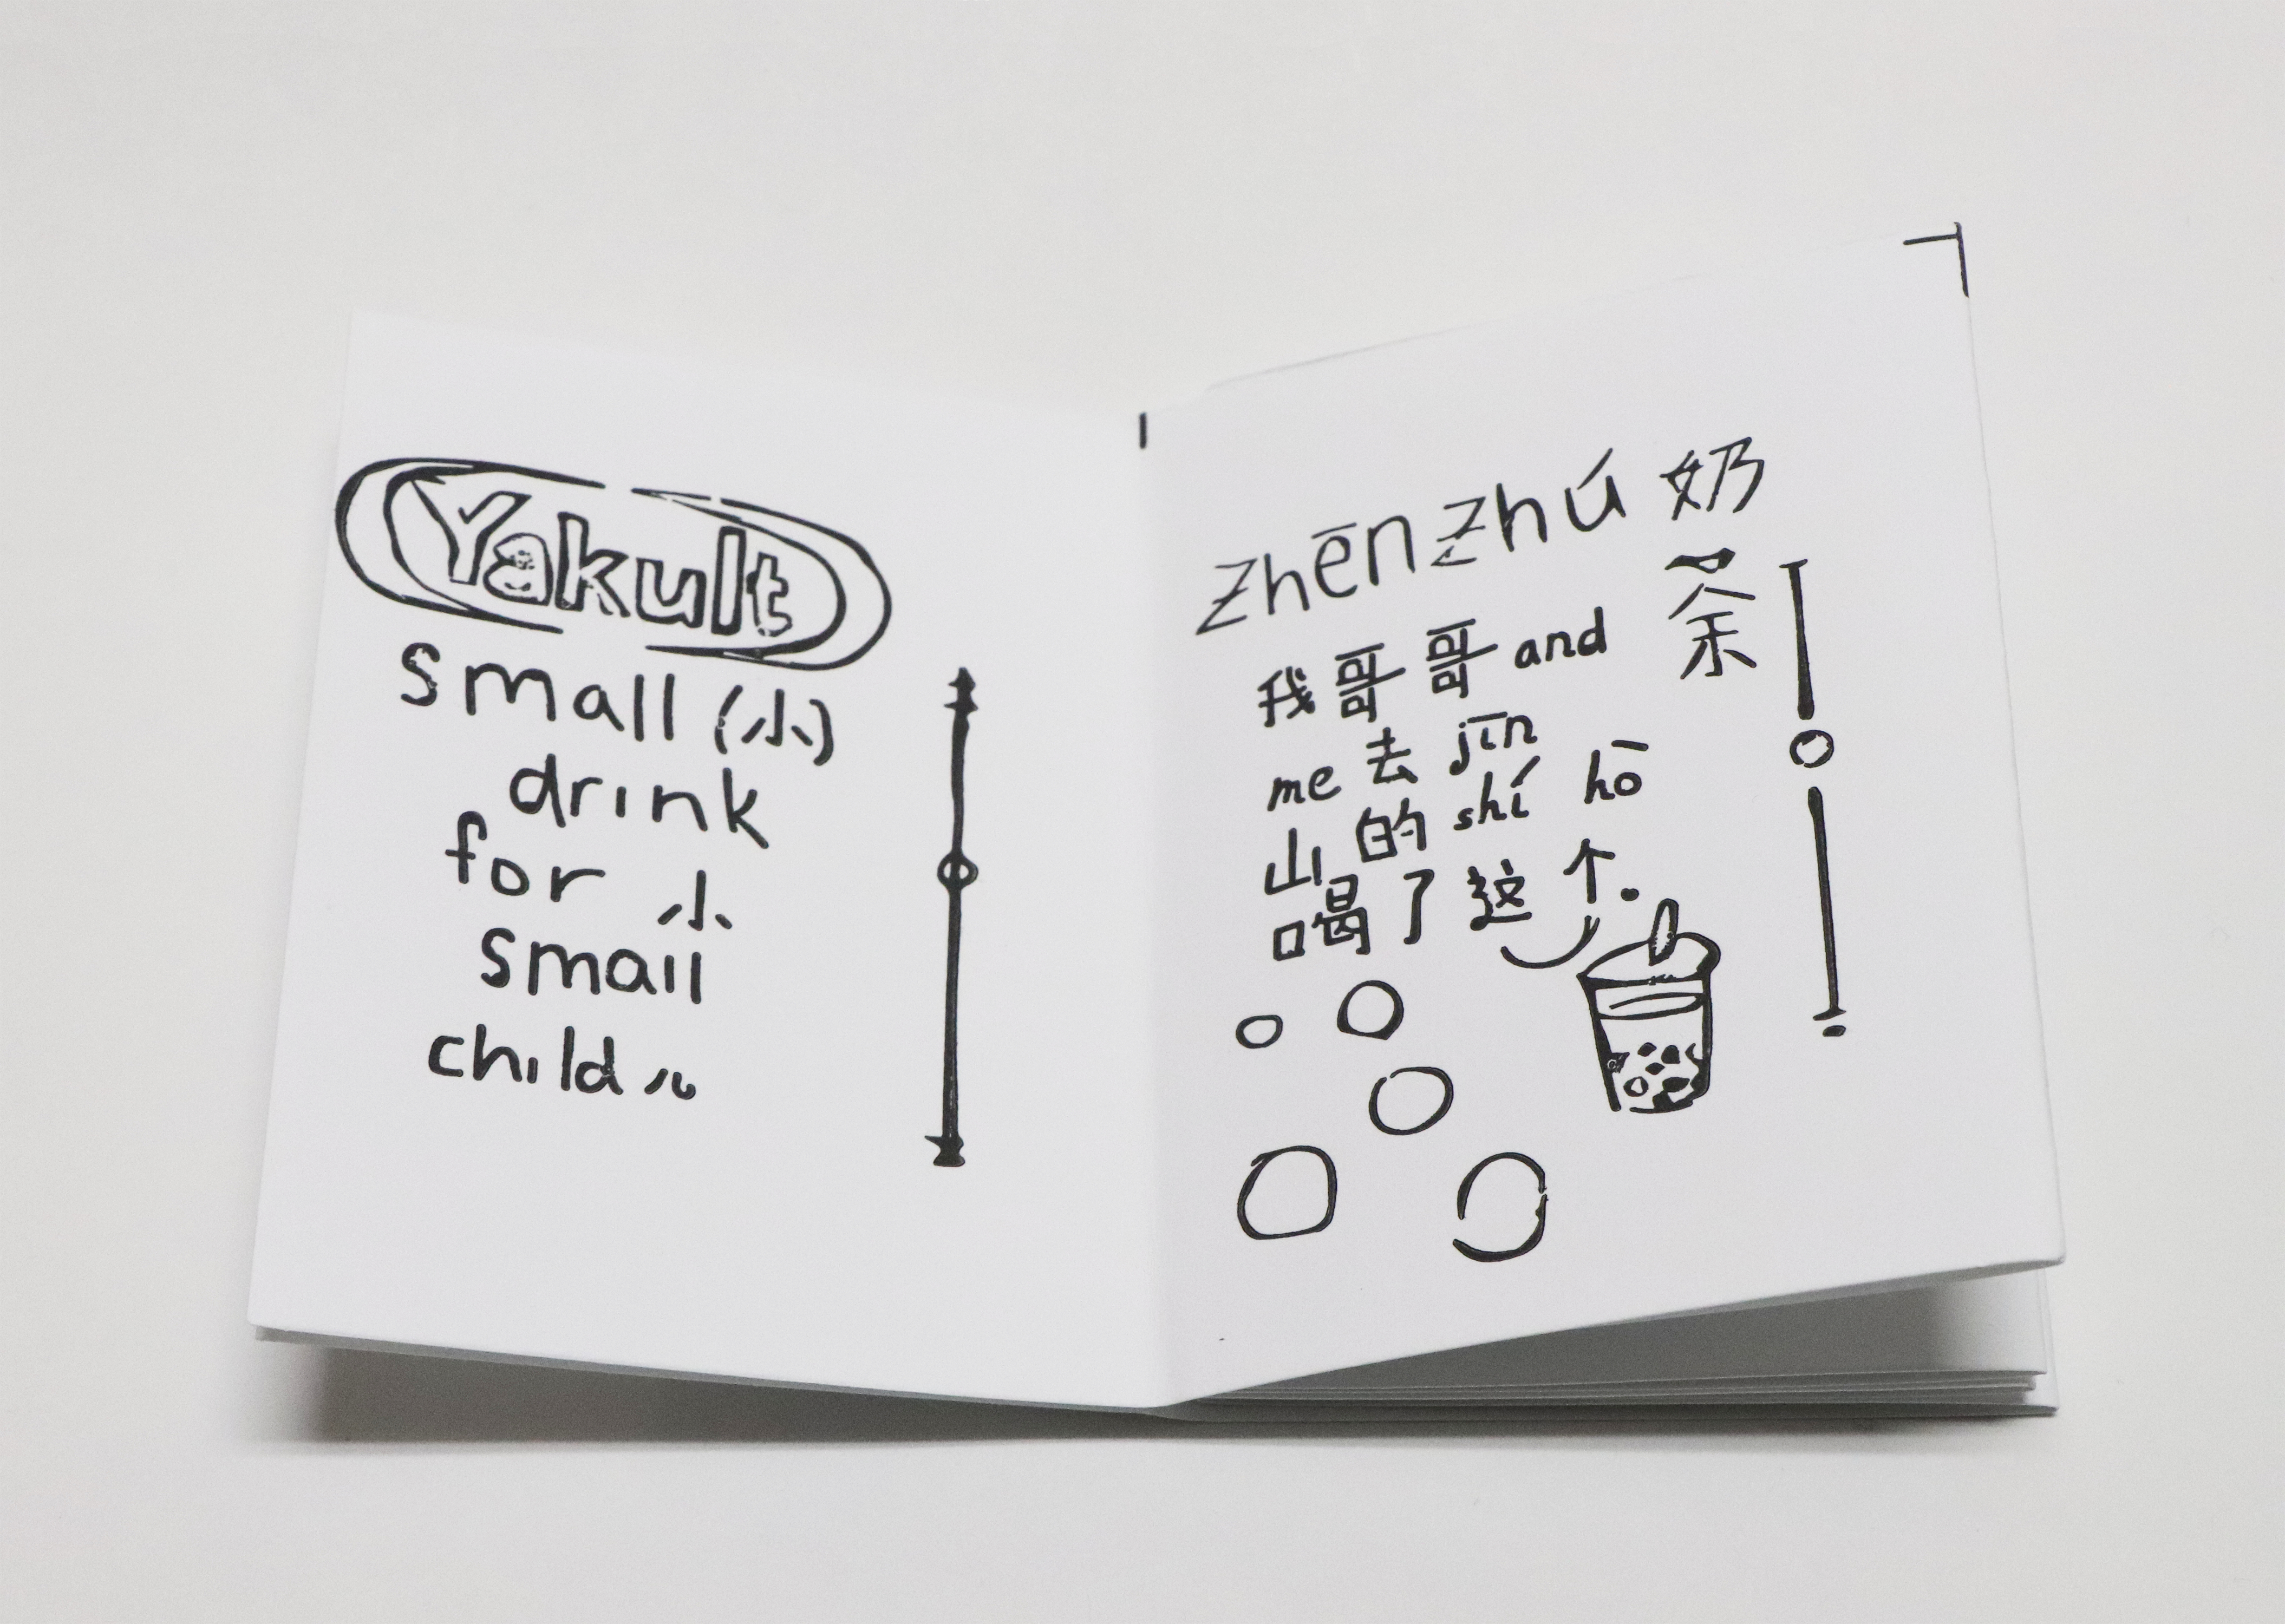 Yakult
small (小)
drink
for 小
small
child 儿
zhēn zhú 奶
茶
我哥哥 and
me 去 jīn
山的 shí hō
喝了这个.